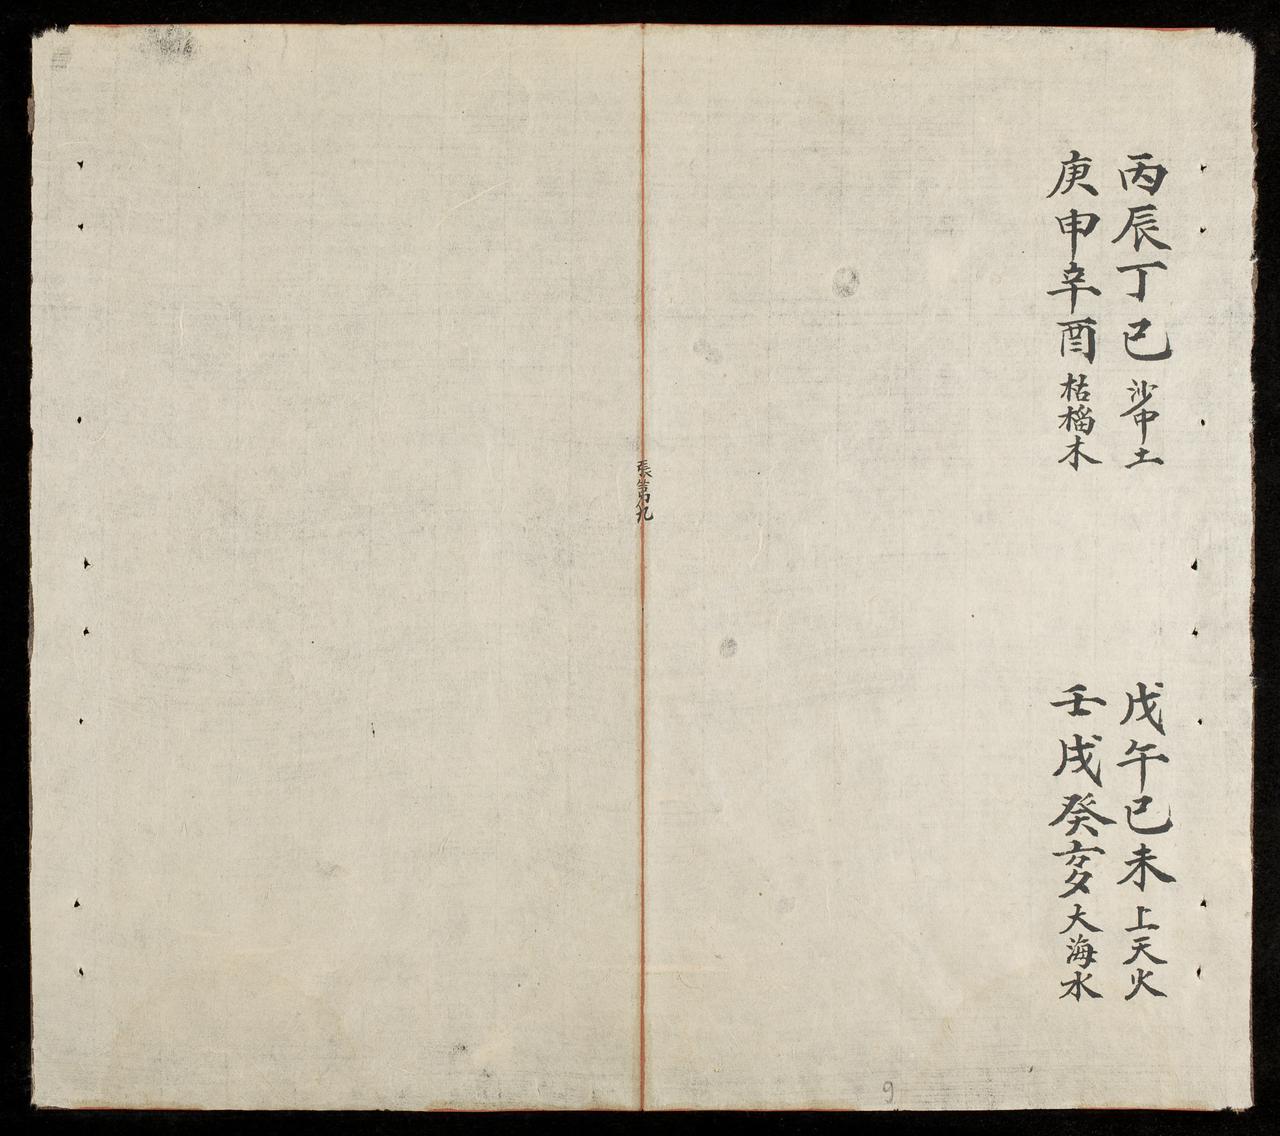 丙辰丁巳沙中土
戊午己未上天火
庚申辛酉枯榴木
壬戌癸亥大海水
張第九
9